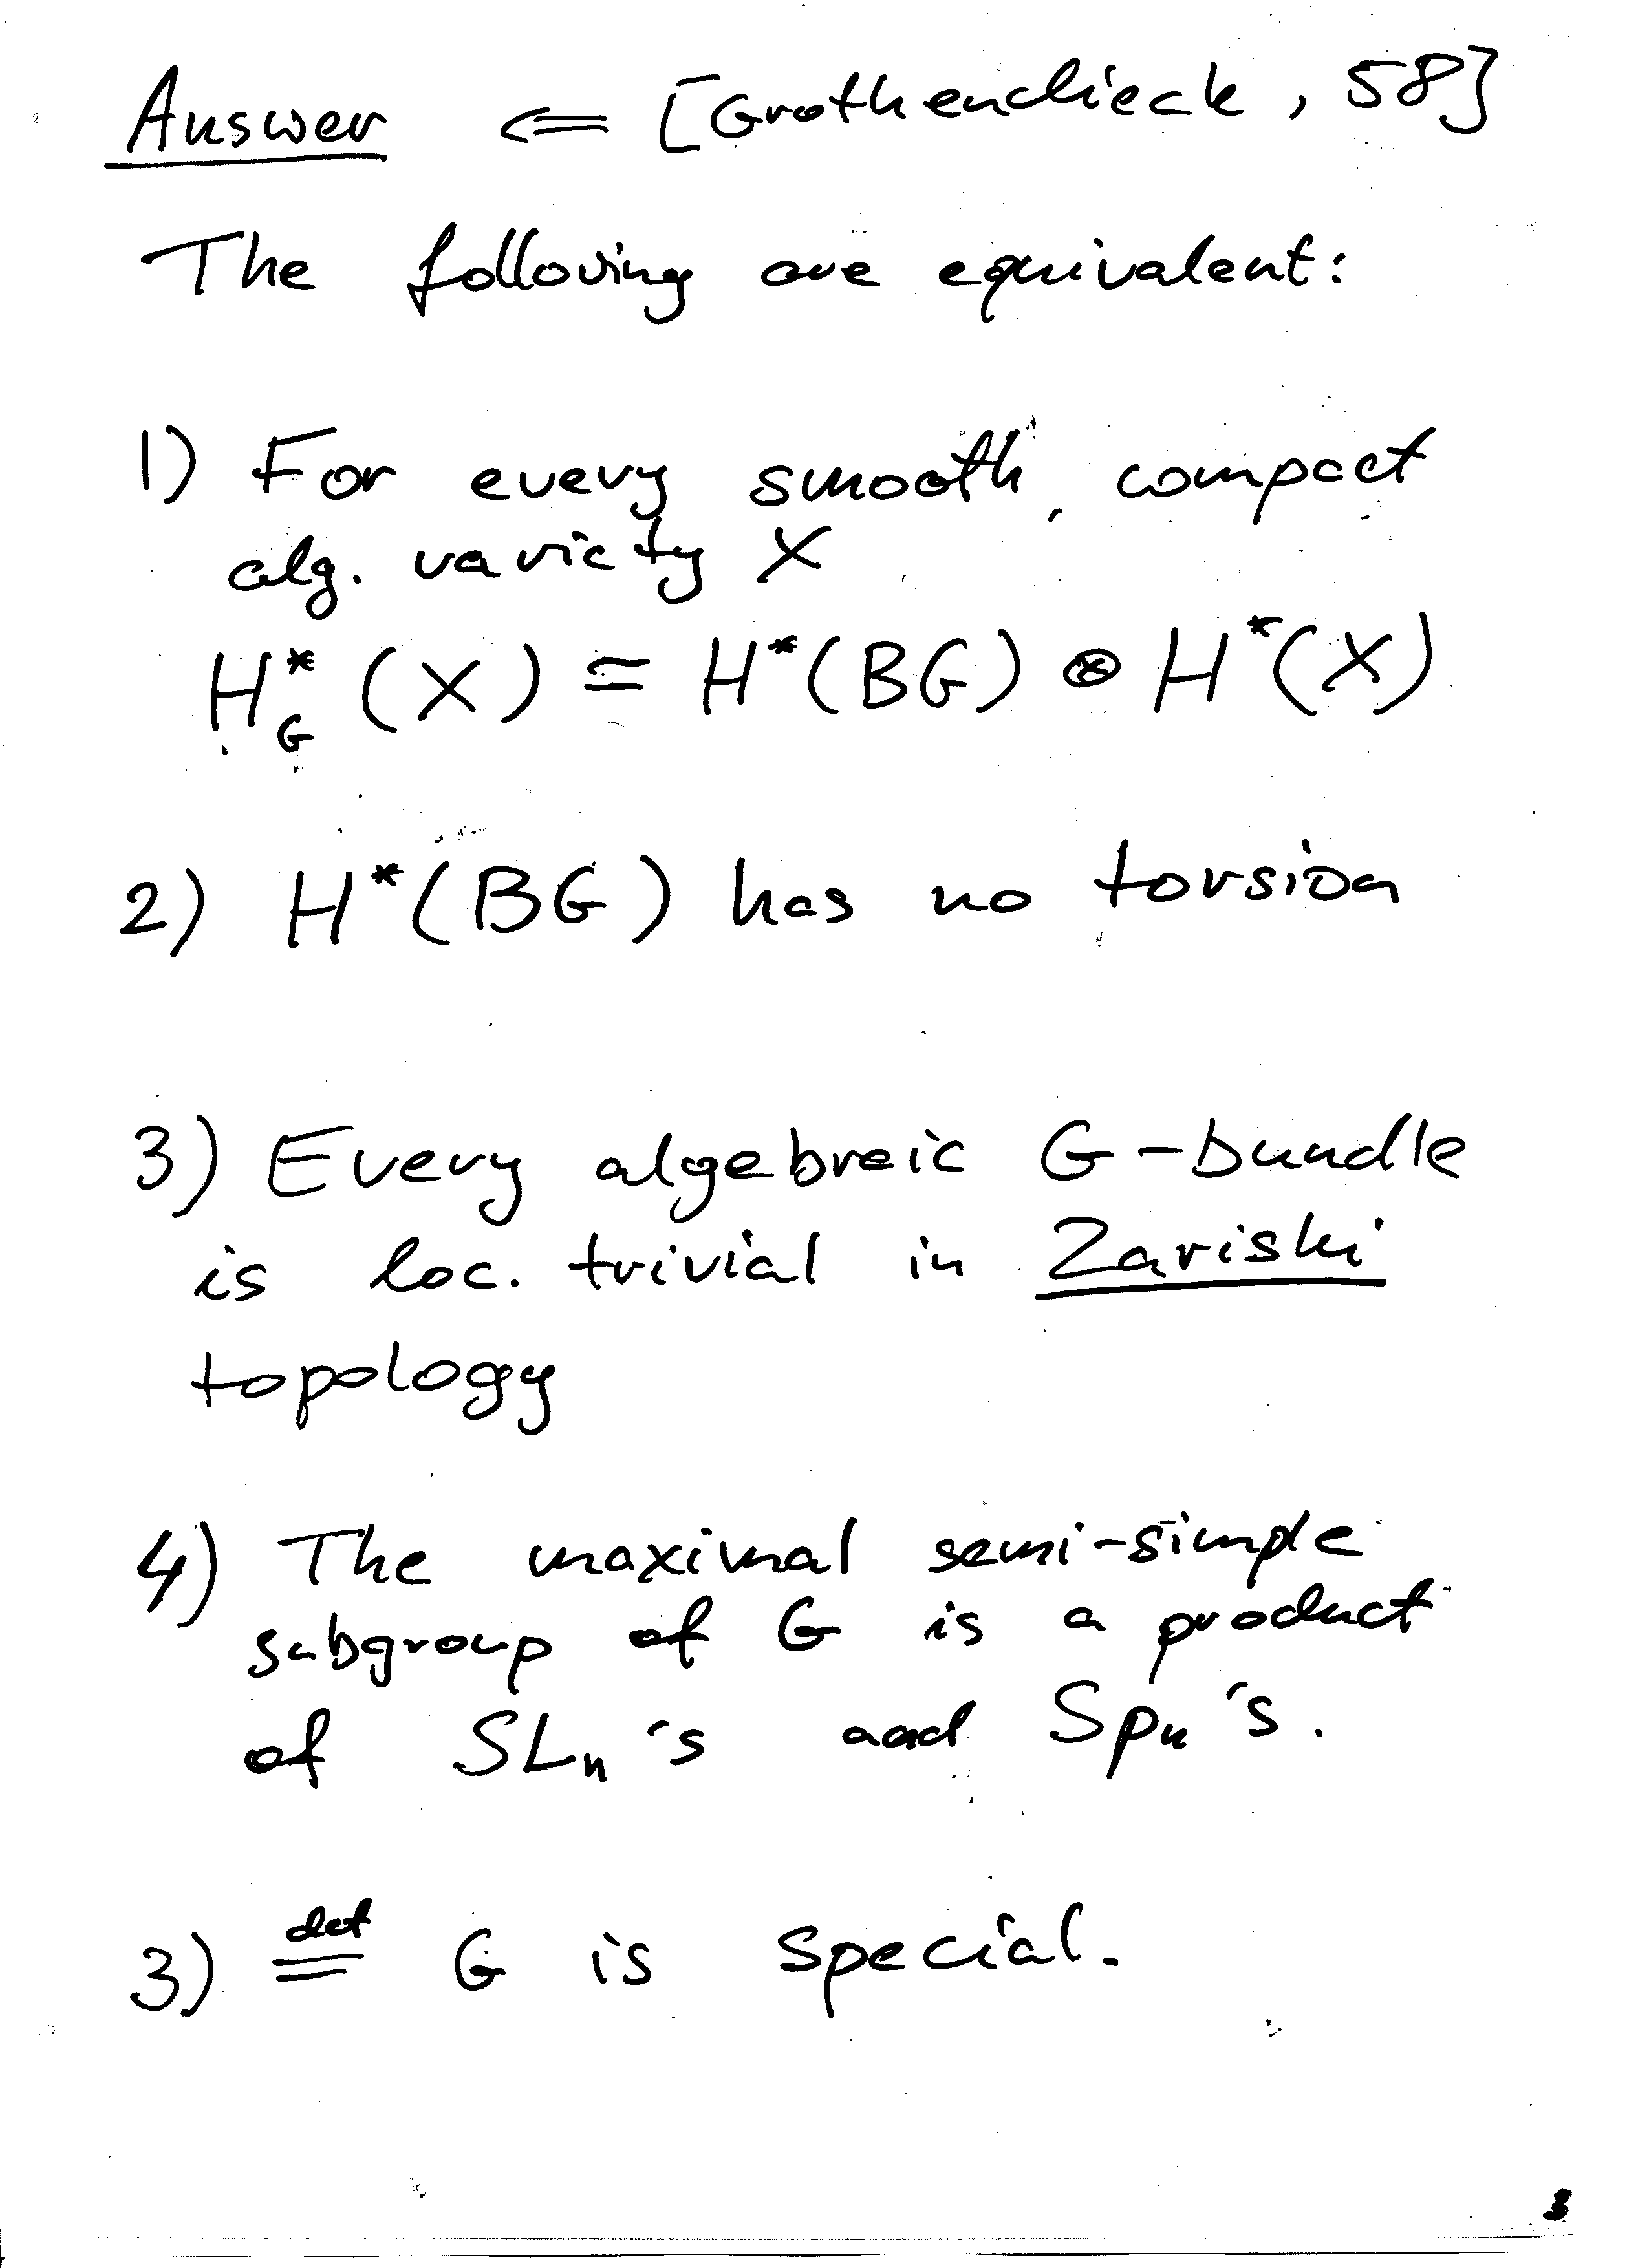 Answer ⇐ [Grothendieck, 58]
The following are equivalent:
1) For every smooth, compact
alg. variety X
H*_G (X) = H*(BG) ⊗ H*(X)
2) H*(BG) has no torsion
3) Every algebraic G-bundle
is loc. trivial in Zariski
topology
4) The maximal semi-simple
subgroup of G is a product
of SLn's and Spn's.
3) def= G is special.
3